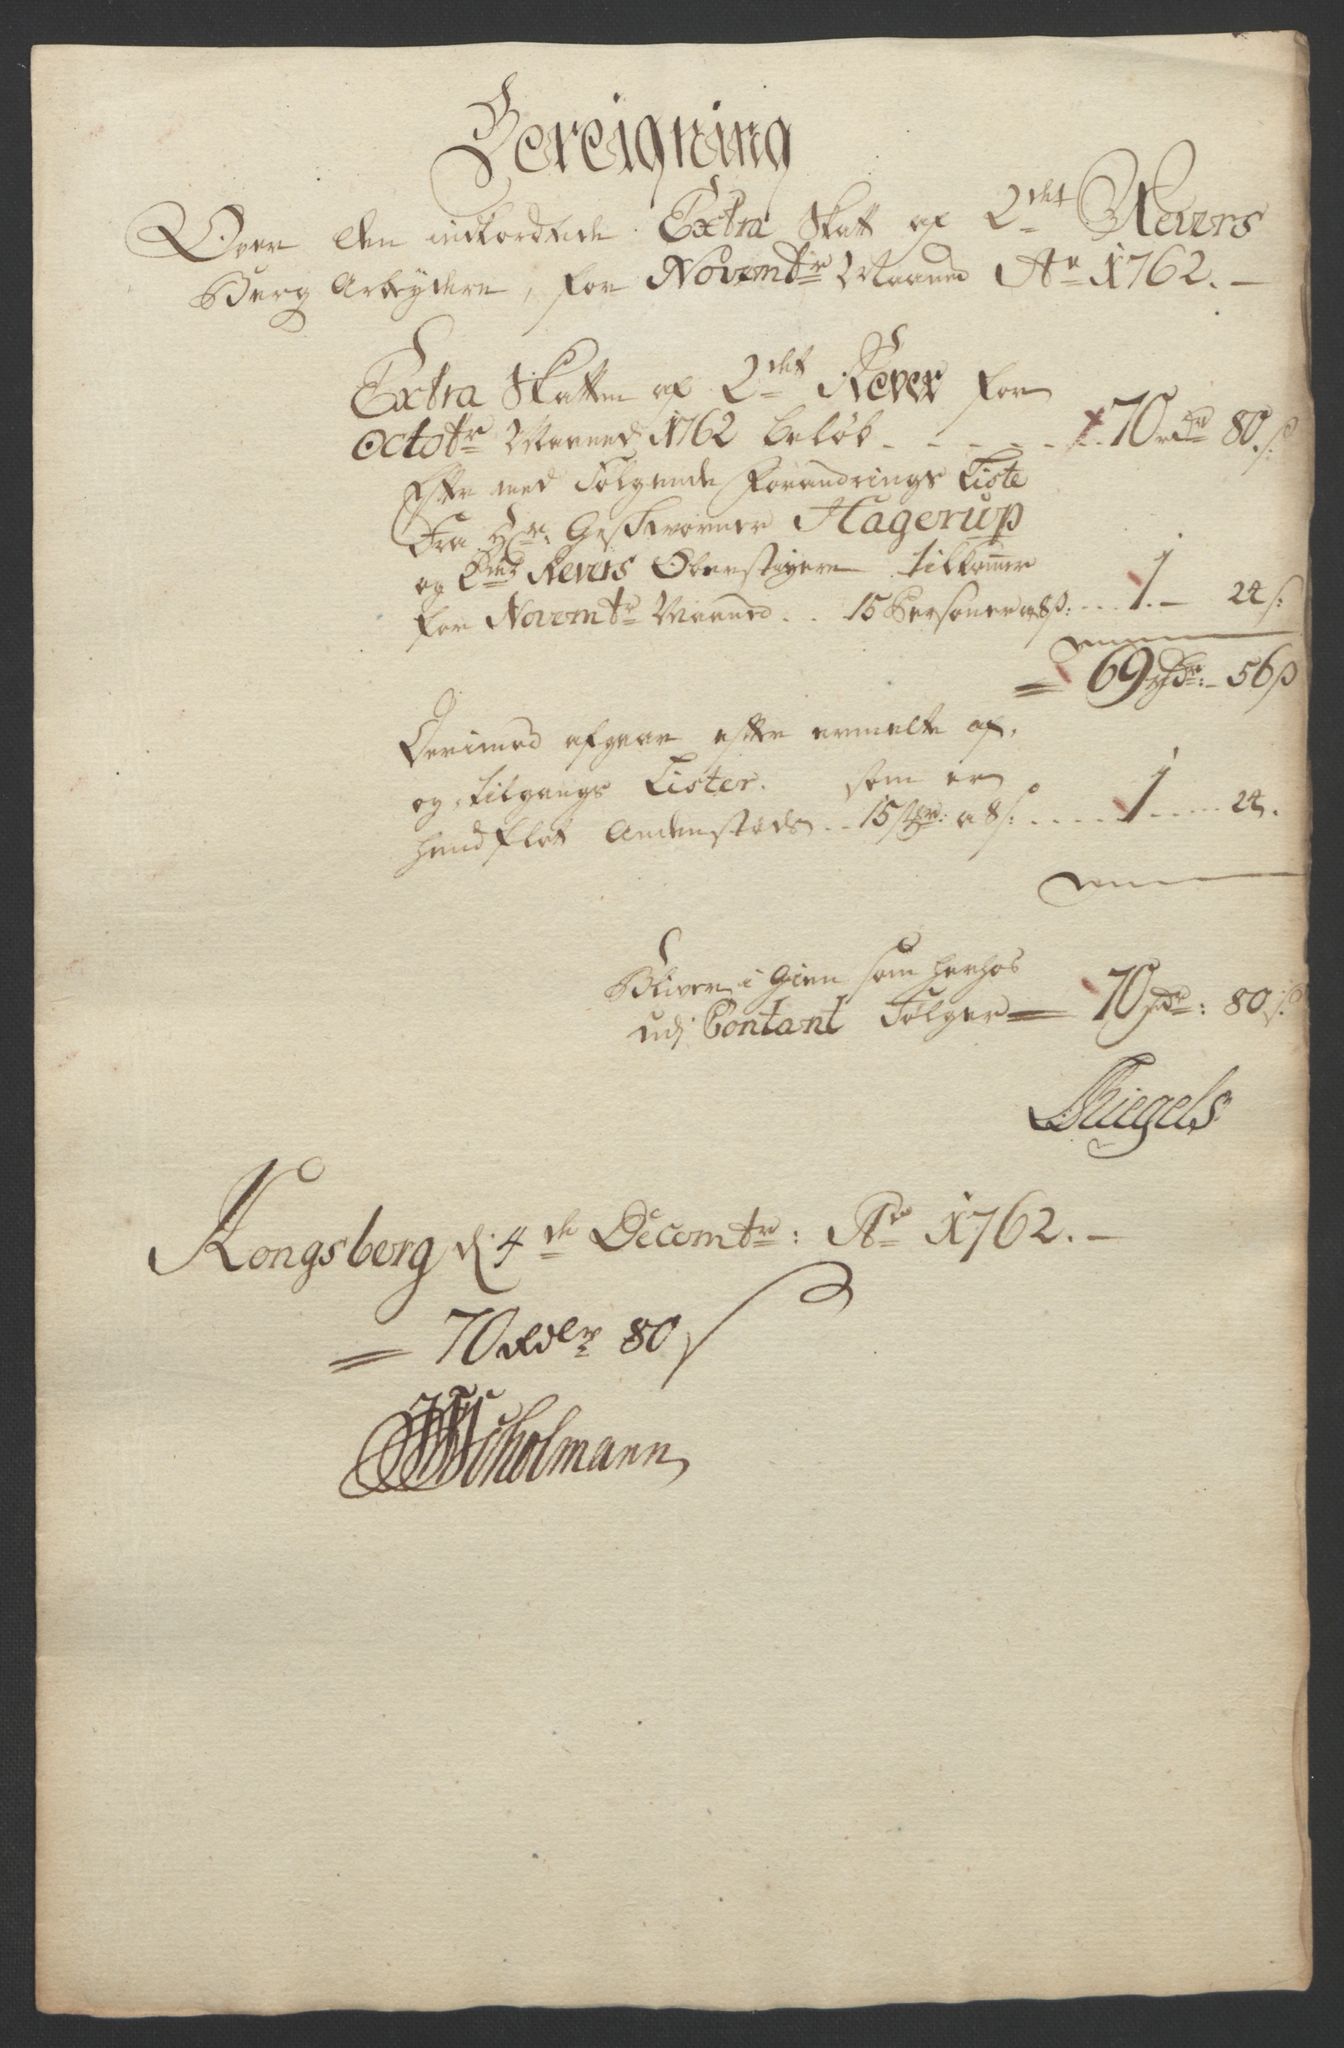 Bereigning
Over den indfordrede Extra Skatt af 2det Revers
Berg Arbeydere, for Novembr Maaned Ao 1762.
Extra Skatten af 2det Rever for
Octobr Maaned 1762 beløb - - - - - 70 rdr 80 ß:
Efter med følgende Forandrings Liste
Fra Hr: Geschworner Hagerup
og 2det Revers Oberstigere tilkommer
for Novembr Maaned . . 15 Personer a 8 ß: . . . 1. — 24 ß:
= 69 rdr: - 56 ß
Derimod afgaar efter ermelte af,
og tilgangs Lister. som er
henfløt Andenstæds . . 15 ß: a 8 ß: . . . . . 1 . . . . 24.
Bliver i Gien som herhos
udi Contant Følger = 70 rdr: 80 ß:
Riegels
Kongsberg d: 4de Decembr: Ao 1762. —
= 70 Rdlr 80 ß
Scholmann